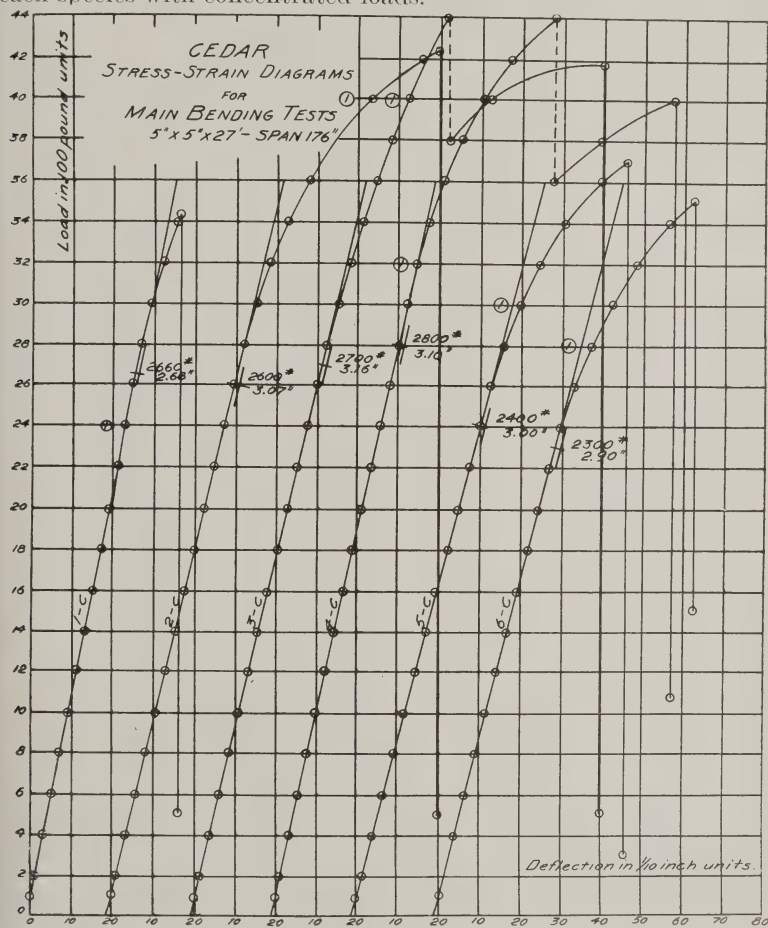 each species with concentrated loads.
CEDAR
STRESS-STRAIN DIAGRAMS
FOR
MAIN BENDING TESTS
5"x5"x27'- SPAN 176"
Load in 100 pound units
44
42
40
38
36
34
32
30
28
26
24
22
20
18
16
14
12
10
8
6
4
2
0
1
1
1
1
1
1
2660#
2.68"
2600#
3.07"
2700#
3.16"
2800#
3.10"
2400#
3.00"
2300#
2.90"
1-C
2-C
3-C
4-C
5-C
6-C
Deflection in 1/10 inch units.
0 10 20 10 20 10 20 10 20 10 20 10 20 30 40 50 60 70 80